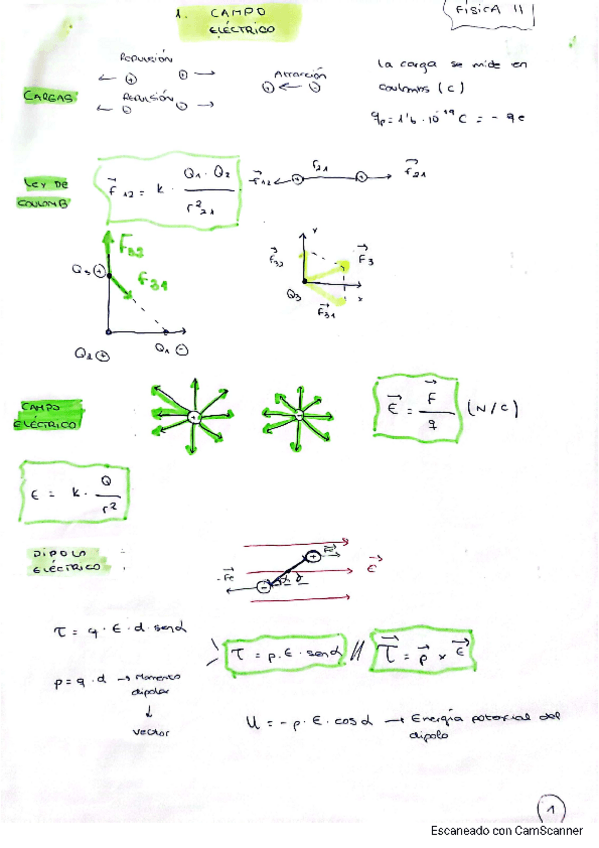 1. CAMPO ELÉCTRICO
FÍSICA II
CARGAS
REPULSIÓN
REPULSIÓN
ATRACCIÓN
La carga se mide en
coulombs (C)
qp = 1'6 · 10⁻¹⁹ C = - qe
LEY DE
COULOMB
F⃗12 = k · Q1 · Q2 / r²21
F⃗12
r21
F⃗21
F⃗32
F⃗31
Q3
Q2
Q1
Y
F⃗32
F⃗3
Q3
F⃗31
x
CAMPO
ELÉCTRICO
E⃗ = F⃗ / q (N/C)
E = k · Q / r²
DIPOLO
ELÉCTRICO :
Fe
-Fe
E⃗
τ = q · E · d · senα
τ = p · E · senα // τ⃗ = p⃗ x E⃗
p = q · d → Momento
dipolar
↓
vector
U = - p · E · cosα → Energía potencial del
dipolo
1
Escaneado con CamScanner